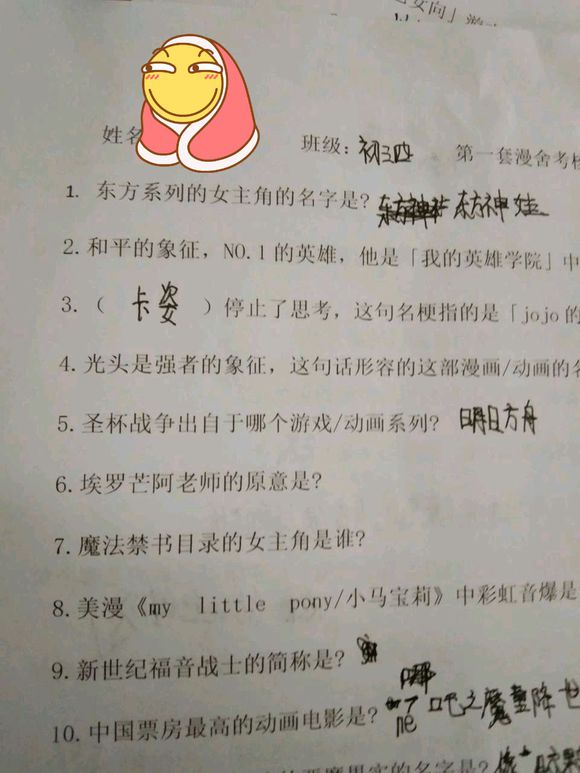 女向」
姓名
班级：初三四 第一套漫舍考核
1. 东方系列的女主角的名字是? 东方神娃
2. 和平的象征，NO.1的英雄，他是「我的英雄学院」中
3. （ 卡姿 ）停止了思考，这句名梗指的是「jojo的
4. 光头是强者的象征，这句话形容的这部漫画/动画的名
5. 圣杯战争出自于哪个游戏/动画系列? 明日方舟
6. 埃罗芒阿老师的原意是?
7. 魔法禁书目录的女主角是谁?
8. 美漫《my little pony/小马宝莉》中彩虹音爆是
9. 新世纪福音战士的简称是?
10. 中国票房最高的动画电影是? 哪吒之魔童降世
恶魔果实的名字是? 橡